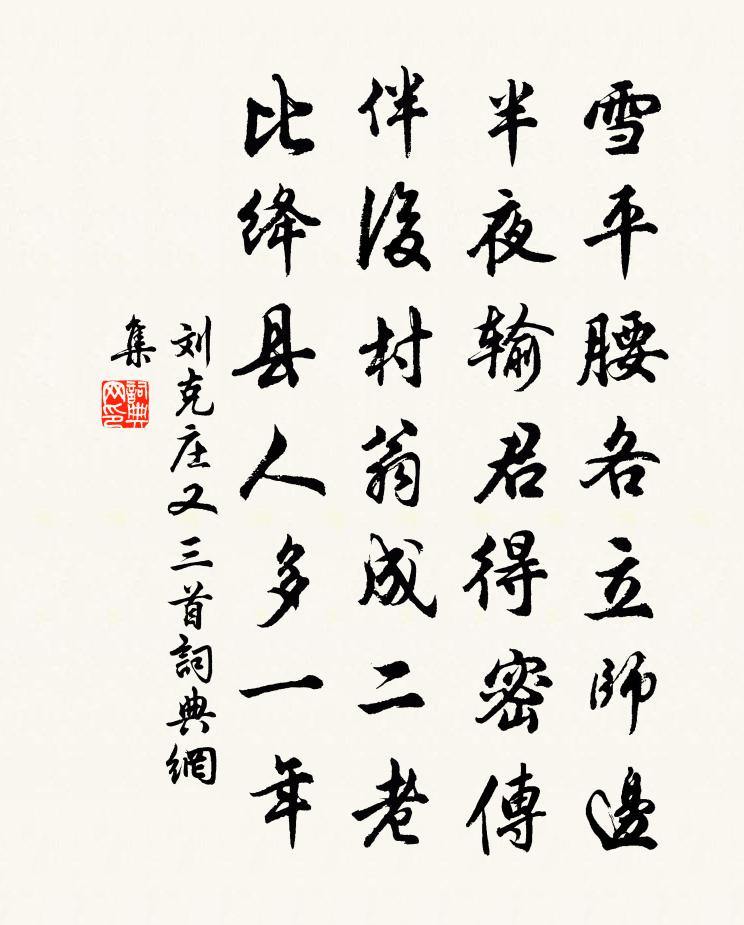 雪平腰各立師邊
半夜输君得密傳
伴後村翁成二老
比绛县人多一年
刘克庄又三首詞典網
集
詞典
网印